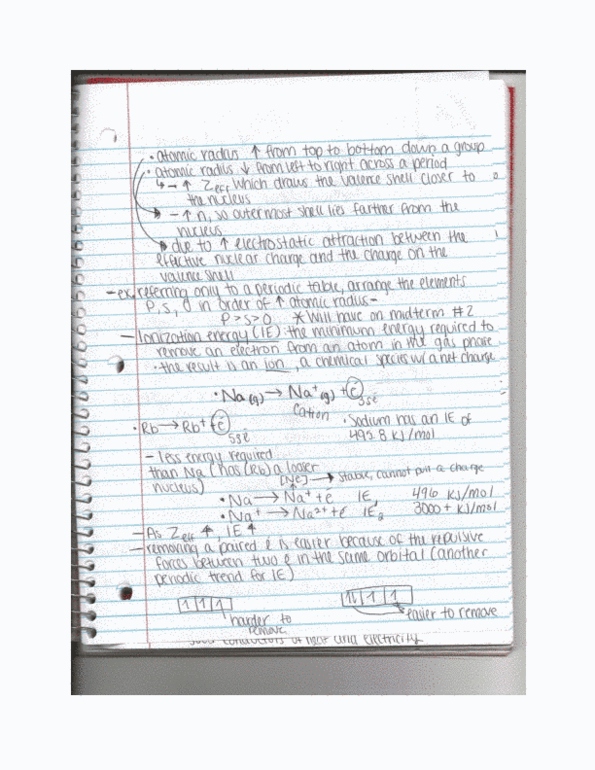 • atomic radius ↑ from top to bottom down a group
• atomic radius ↓ from left to right across a period
↳ - ↑ Zeff which draws the valence shell closer to
the nucleus
- ↑ n, so outermost shell lies farther from the
nucleus
due to ↑ electrostatic attraction between the
effective nuclear charge and the charge on the
valence shell
- ex, referring only to a periodic table, arrange the elements
P, S, O in order of ↑ atomic radius -
P > S > O * Will have on midterm #2
- Ionization energy (IE): the minimum energy required to
remove an electron from an atom in the gas phase
• the result is an ion, a chemical species w/ a net charge
• Na(g) → Na⁺(g) + e⁻
cation
• Rb → Rb⁺ + e⁻
• Sodium has an IE of
495.8 kJ/mol
- less energy required
than Na (has (Rb) a
nucleus)
[Ne] → stable, cannot a charge
• Na → Na⁺ + e⁻ IE₁ 496 kJ/mol
• Na⁺ → Na²⁺ + e⁻ IE₂ 3000+ kJ/mol
- As Zeff ↑, IE ↑
- removing a paired e⁻ is easier because of the repulsive
forces between two e⁻ in the same orbital (another
periodic trend for IE)
1 1 1
harder to
remove
1↓ 1 1
easier to remove
good conductors of heat and electricity